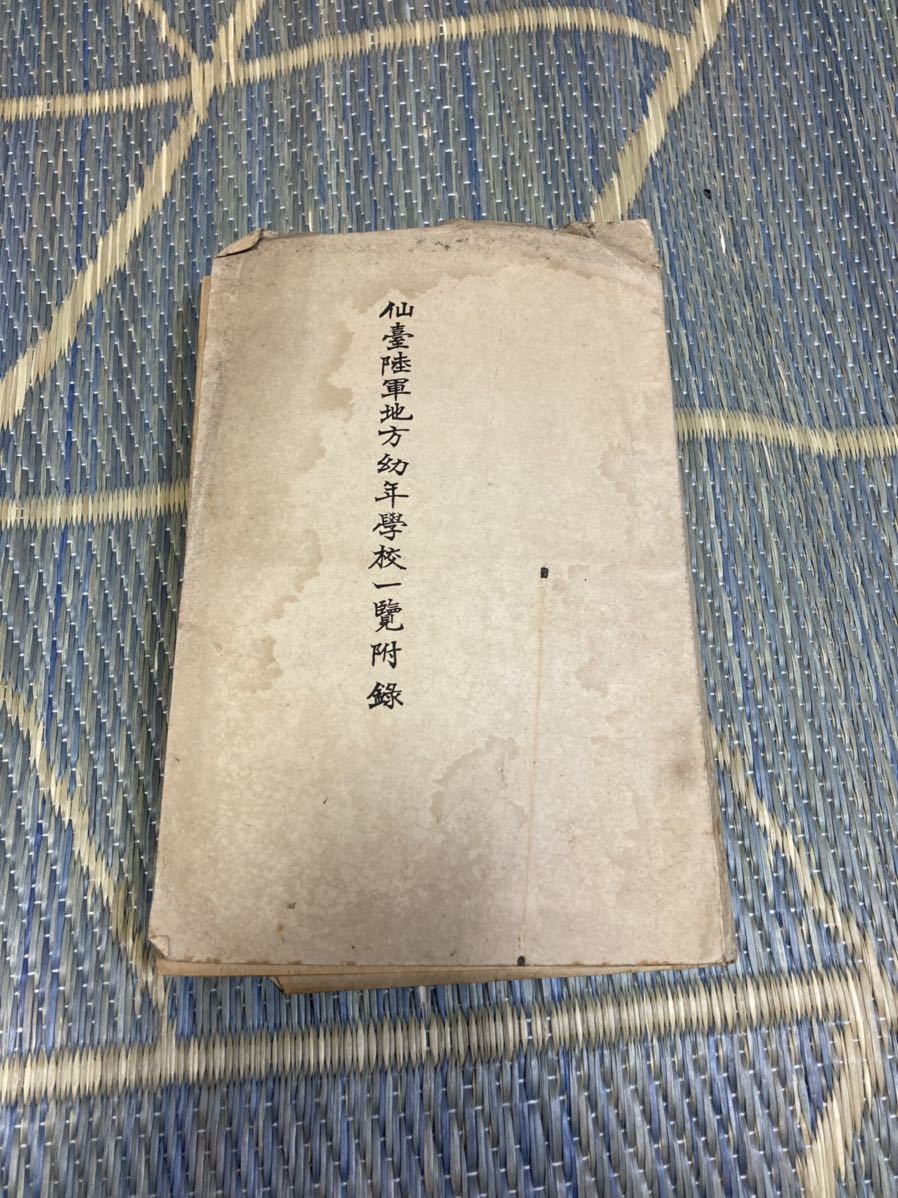 仙臺陸軍地方幼年學校一覽附錄